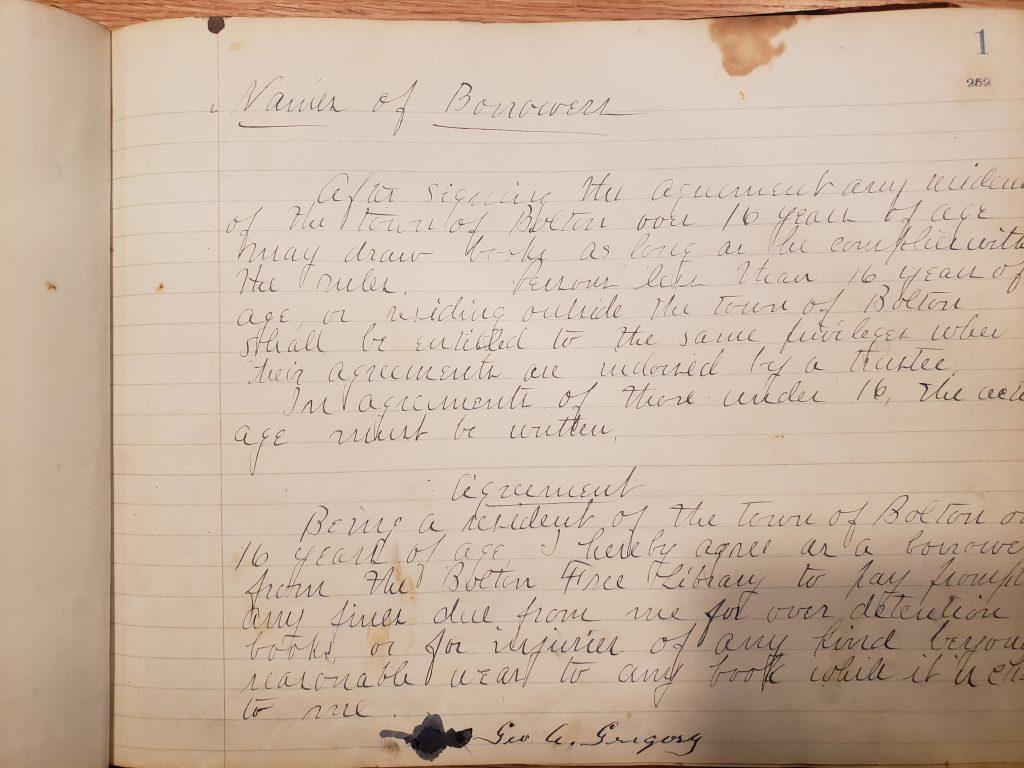 1
252
Names of Borrowers
After signing the agreement any residen
of the town of Bolton over 16 years of age
may draw books as long as he complies with
the rules. Persons less than 16 years of
age, or residing outside the town of Bolton
shall be entitled to the same privileges when
their agreements are indorsed by a trustee.
In agreements of those under 16, the act
age must be written.
Agreement
Being a resident of the town of Bolton o
16 years of age I hereby agree as a borrowe
from the Bolton Free Library to pay prompt
any fines due from me for over detention
books, or for injuries of any kind beyon
reasonable wear to any book while it is ch
to me.
Geo A. Gregory